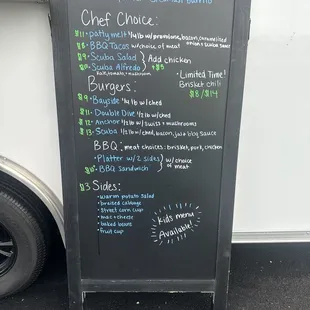 Chef Choice:
$11 • patty melt 1/4 lb w/ provolone, bacon, caramelized onion & scuba sauce
$8 • BBQ Tacos w/choice of meat
$9 • Scuba Salad
$10 • Scuba Alfredo
Add chicken +$3
kale, tomato, mushroom
• Limited Time!
Brisket chili
$8/$14
Burgers:
$9 • Bayside 1/4 lb w/ched
$11 • Double Dive 1/2 lb w/ched
$12 • Anchor 1/2 lb w/swiss + mushrooms
$13 • Scuba 1/2 lb w/ched, bacon, jus + bbq sauce
BBQ: meat choices: brisket, pork, chicken
• Platter w/ 2 sides
$10 • BBQ Sandwich
w/choice of meat
$3 Sides:
• warm potato salad
• braised cabbage
• street corn cup
• mac + cheese
• baked beans
• fruit cup
Kids menu
Available!